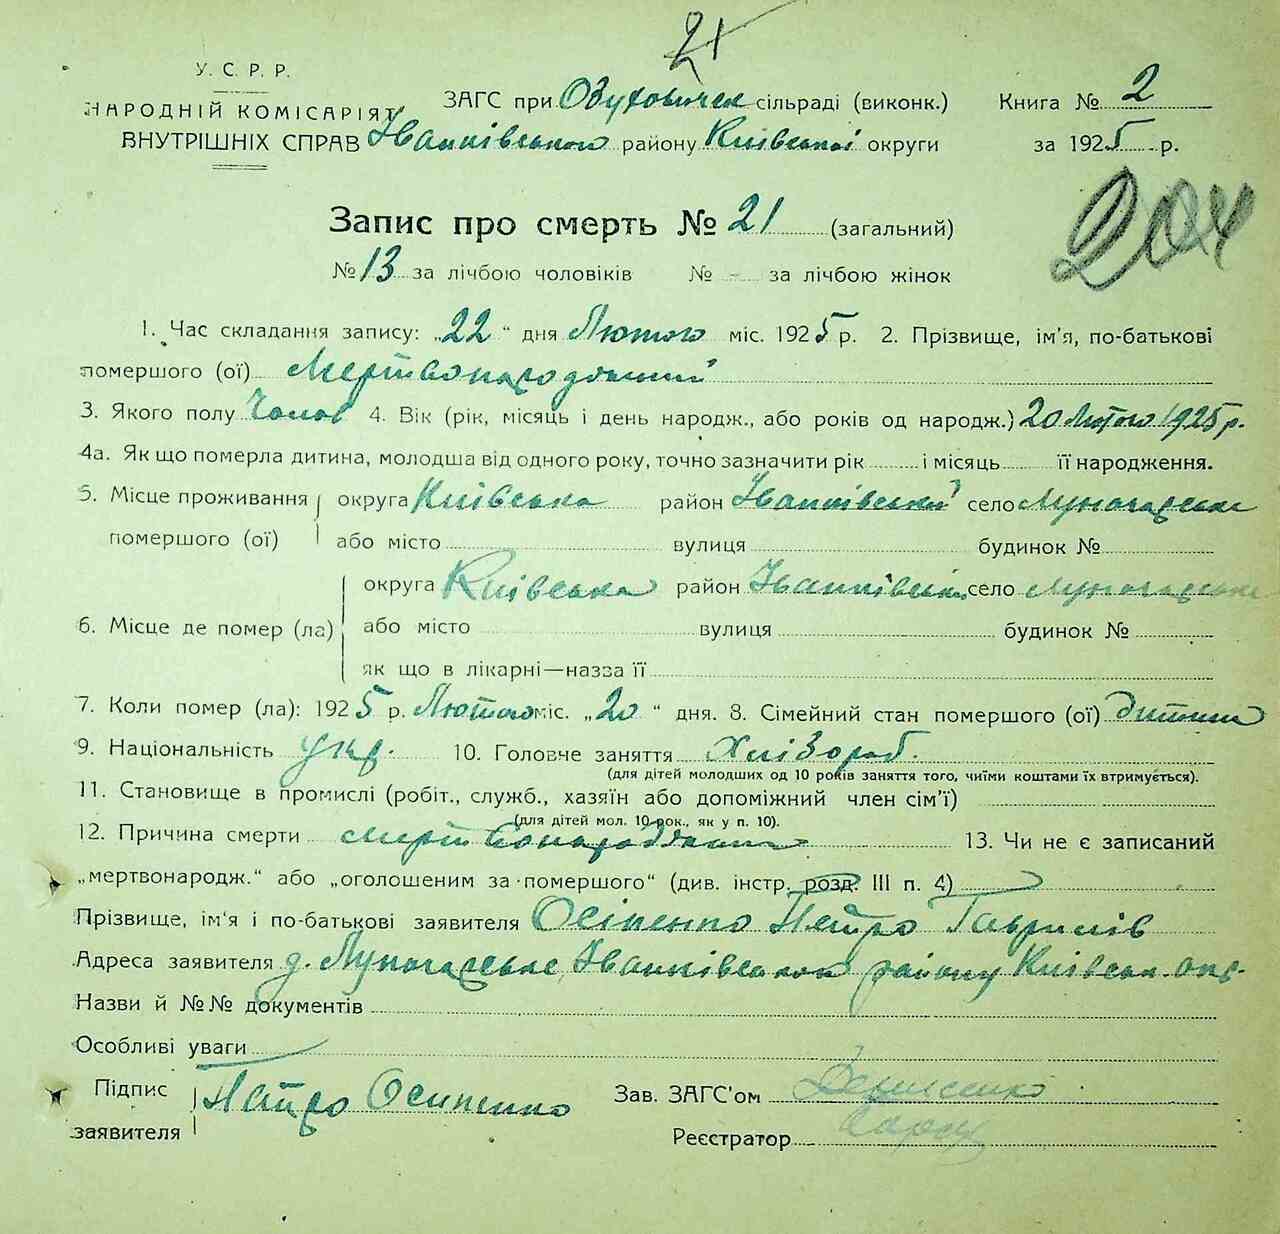 21
У. С. Р. Р.
НАРОДНІЙ КОМІСАРІЯТ
ВНУТРІШНІХ СПРАВ
ЗАГС при Обуховичек сільраді (виконк.) Книга № 2
Іванківського району Київської округи за 1925 р.
204
Запис про смерть № 21 (загальний)
№ 13 за лічбою чоловіків № - за лічбою жінок
1. Час складання запису: „22“ дня Лютого міс. 1925 р. 2. Прізвище, ім'я, по-батькові
помершого (ої) Мертвонародженний
3. Якого полу Чолов 4. Вік (рік, місяць і день народж., або років од народж.) 20 Лютого 1925 р.
4а. Як що померла дитина, молодша від одного року, точно зазначити рік і місяць її народження.
5. Місце проживання помершого (ої) округа Київська район Іванківський село
або місто вулиця будинок №
6. Місце де помер (ла) округа Київська район Іванківськ село
або місто вулиця будинок №
як що в лікарні—назва її
7. Коли помер (ла): 1925 р. Лютого міс. „20“ дня. 8. Сімейний стан помершого (ої) дитина
9. Національність укр. 10. Головче заняття Хлібороб.
(для дітей молодших од 10 років заняття того, чиїми коштами їх втримується).
11. Становище в промислі (робіт., служб., хазяїн або допоміжний член сім'ї)
(для дітей мол. 10 рок., як у п. 10).
12. Причина смерти 13. Чи не є записаний
„мертвонародж.“ або „оголошеним за помершого“ (див. інстр. розд. III п. 4)
Прізвище, ім'я і по-батькові заявителя Осіпенко Петро Гаврилів
Адреса заявителя д. Іванківського району Київськ. окр.
Назви й №№ документів
Особливі уваги
Підпис заявителя Петро Осипенко Зав. ЗАГС'ом Денисенко
Реєстратор